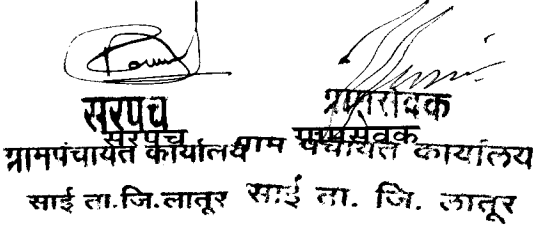 सरपंच ग्रामसेवक
सरपंच ग्रामसेवक
ग्रामपंचायत कार्यालय ग्राम पंचायत कार्यालय
साई ता.जि.लातूर साई ता. जि. लातूर